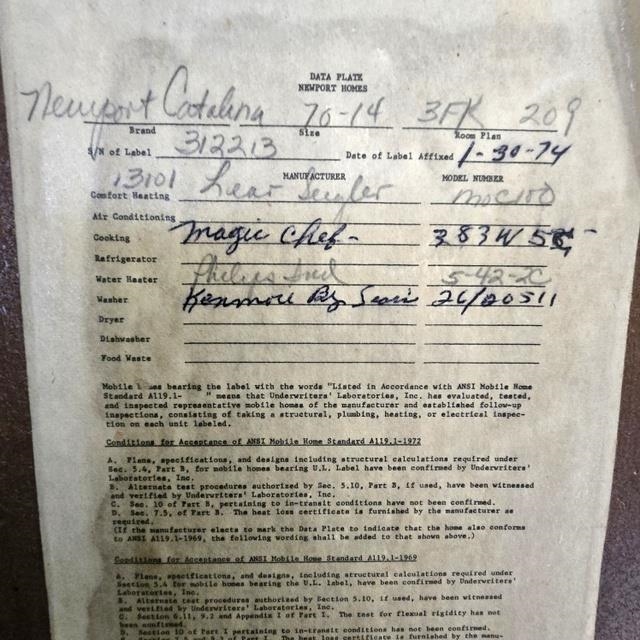 DATA PLATE
NEWPORT HOMES
Newport Catalina 70-14 3FK 209
Brand Size Room Plan
S/N of Label 312213 Date of Label Affixed 1-30-74
13101 MANUFACTURER MODEL NUMBER
Comfort Heating Lear Seigler MOC100
Air Conditioning
Cooking Magic Chef- 383W
Refrigerator
Water Heater 5-42-2C
Washer Kenmore By Sears 26/20511
Dryer
Dishwasher
Food Waste
Mobile bearing the label with the words "Listed in Accordance with ANSI Mobile Home
Standard A119.1- " means that Underwriters' Laboratories, Inc. has evaluated, tested,
and inspected representative mobile homes of the manufacturer and established follow-up
inspections, consisting of taking a structural, plumbing, heating, or electrical inspec-
tion on each unit labeled.
Conditions for Acceptance of ANSI Mobile Home Standard A119.1-1972
A. Plans, specifications, and designs including structural calculations required under
Sec. 5.4, Part B, for mobile homes bearing U.L. Label have been confirmed by Underwriters'
Laboratories, Inc.
B. Alternate test procedures authorized by Sec. 5.10, Part B, if used, have been witnessed
and verified by Underwriters' Laboratories, Inc.
C. Sec. 10 of Part B, pertaining to in-transit conditions have not been confirmed.
D. Sec. 7.5, of Part B. The heat loss certificate is furnished by the manufacturer as
required.
(If the manufacturer elects to mark the Data Plate to indicate that the home also conforms
to ANSI A119.1-1969, the following wording shall be added to that shown above.)
Conditions for Acceptance of ANSI Mobile Home Standard A119.1-1969
A. Plans, specifications, and designs, including structural calculations required under
Section 5.4 for mobile homes bearing the U.L. label, have been confirmed by Underwriters'
Laboratories, Inc.
B. Alternate test procedures authorized by Section 5.10, if used, have been witnessed
and verified by Underwriters' Laboratories, Inc.
C. Section 6.11, 9.2 and Appendix I of Part I. The test for flexual rigidity has not
been confirmed.
D. Section 10 of Part I pertaining to in-transit conditions have not been confirmed.
of Part I. The heat loss certificate is furnished by the manu-